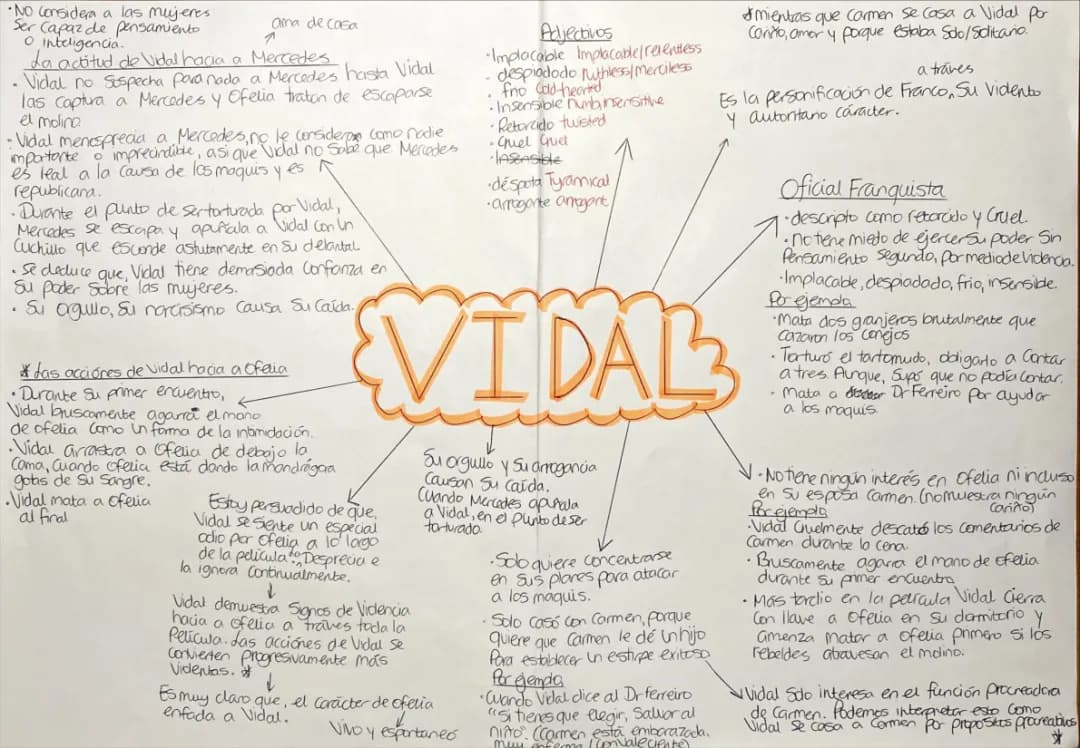 · No considera a las mujeres
ser capaz de pensamiento
o inteligencia.
ama de casa
La actitud de Vidal hacia a Mercedes
· Vidal no sospecha para nada a Mercedes hasta Vidal
las captura a Mercedes y Ofelia tratan de escaparse
el molino.
· Vidal menosprecia a Mercedes, no le consideran como nadie
importante o imprecindible, asi que Vidal no sabe que Mercedes
es leal a la causa de los maquis y es
republicana.
· Durante el punto de ser torturada por Vidal,
Mercedes se escapa y apuñala a Vidal con un
cuchillo que esconde astutamente en su delantal
· Se deduce que, Vidal tiene demasiada confianza en
su poder sobre las mujeres.
· Su orgullo, su narcisismo causa su caída.
Adjectivos
· Implacable Implacable/relentless
· despiadado ruthless/merciless
· frío Cold-hearted
· Insensible numb, insensitive
· Retorcido twisted
· Cruel Cruel
· Insensible
· déspota Tyrannical
· arrogante arrogant
* mientras que Carmen se casa a Vidal por
cariño, amor y porque estaba solo/solitario.
a través
Es la personificación de Franco, su violento
y autoritario cáracter.
Oficial Franquista
· descripto como retorcido y cruel.
· no tiene miedo de ejercer su poder sin
pensamiento segundo, por medio de violencia.
· Implacable, despiadado, frio, insensible.
Por ejemplo
· Mata dos granjeros brutalmente que
cazaron los conejos
· Torturó el tartamudo, obligarlo a contar
a tres. Aunque, supo que no podía contar.
· Mata a Dr Ferreiro por ayudar
a los maquis.
VIDAL
* Las acciónes de Vidal hacia a Ofelia
· Durante su primer encuentro,
Vidal bruscamente agarra el mano
de ofelia como un forma de la intimidación.
· Vidal arrastra a Ofelia de debajo la
cama, cuando ofelia está dando la mandrágora
gotis de su sangre.
· Vidal mata a Ofelia
al final
Estoy persuadido de que,
Vidal se siente un especial
odio por ofelia a lo largo
de la película. Desprecia e
la ignora continualmente.
Vidal demuestra signos de violencia
hacia a ofelia a través toda la
película. Las acciónes de Vidal se
convierten progresivamente más
violentas. *
Es muy claro que, el carácter de ofelia
enfada a Vidal.
Vivo y espontaneo
Su orgullo y su arrogancia
causan su caída.
Cuando Mercedes apuñala
a Vidal, en el punto de ser
torturado.
· Solo quiere concentrarse
en sus planes para atacar
a los maquis.
· Solo casó con Carmen, porque
quiere que Carmen le dé un hijo
para establecer un estirpe exitoso
Por ejemplo
· Cuando Vidal dice al Dr ferreiro
"si tienes que elegir, salvar al
niño". (Carmen está embarazada,
muy enferma (convaleciente)
· No tiene ningún interés en Ofelia ni incluso
en su esposa Carmen. (no muestra ningún
cariño)
Por ejemplo
· Vidal cruelmente descató los comentarios de
Carmen durante la cena
· Buscamente agarra el mano de ofelia
durante su primer encuentro
· Más tardio en la película Vidal cierra
con llave a Ofelia en su dormitorio y
amenza matar a ofelia primero si los
rebeldes atraviesan el molino.
Vidal solo interesa en el función procreadora
de Carmen. Podemos interpretar esto como
Vidal se casa a Carmen por propositos procreativos
*